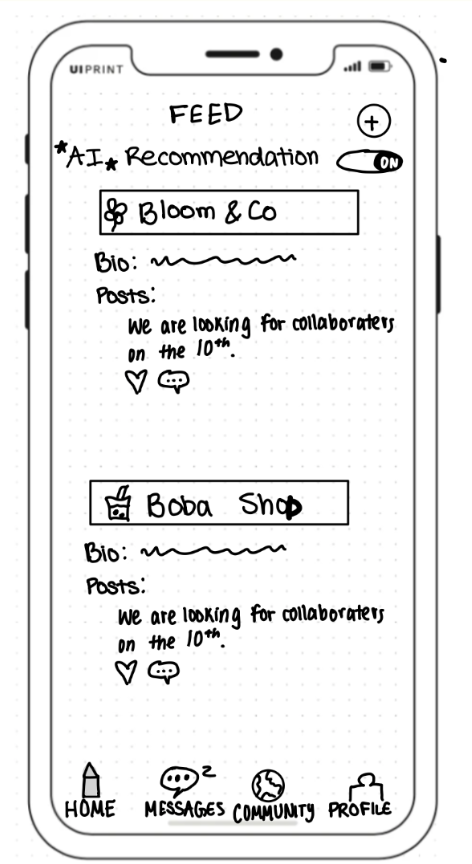 UIPRINT
FEED
+
*AI* Recommendation ON
Bloom & Co
Bio:
Posts:
We are looking for collaboraters
on the 10th.
Boba Shop
Bio:
Posts:
We are looking for collaboraters
on the 10th.
2
HOME MESSAGES COMMUNITY PROFILE